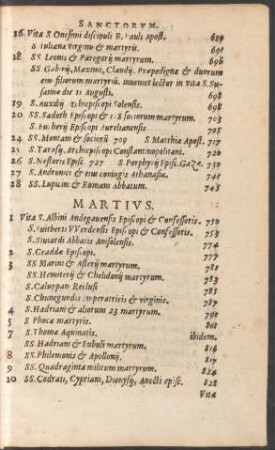 SANCTORVM.
16 Vita S. Onesimi discipuli B. Pauli Apost.
S. Iulianæ virginis & martyris. 691
18 SS. Leonis & Paregorij martyrum. 696
SS. Gabinij, Maximi, Claudij, Præpedignæ & duorum
eius filiorum martyrū. inuenies lector in vita S. Su-
sannæ die 11 Augusti.
19 S. Auxibij Archiepiscopi Solensis.
20 SS. Sadoth Episcopi & 128 Sociorum martyrum. 703
S. Eucherij Episcopi Aurelianensis. 705
24 SS. Montani & sociorū 709 S. Matthiæ Apost. 717
25 S. Tarasij, Archiepiscopi Constantinopolitani. 720
26 S. Nestoris Episc. 727 S. Porphyrij Episc. Gazæ. 730
27 S. Andronici & eius coniugis Athanasiæ. 746
28 SS. Lupicini & Romani abbatum. 748
MARTIVS.
1 Vita S. Albini Andegauensis Episcopi & Confessoris. 750
S. Suitberti VVerdensis Episcopi & Confessoris. 753
S. Siuiardi Abbatis Anisolensis. 774
2 S. Ceaddæ Episcopi. 777
3 SS. Marini & Asterij martyrum. 781
SS. Hemiterij & Chelidonij martyrum. 783
S. Caluppan Reclusi
S. Chunegundis imperatricis & virginis.
4 S. Hadriani & aliorum 23 martyrum.
5 S. Phocæ martyris. 793
7 S. Thomæ Aquinatis. ibidem.
SS. Hadriani & Eubuli martyrum. 814
8 SS. Philemonis & Apollonij. 816
9 SS. Quadraginta militum martyrum. 824
10 SS. Codrati, Cypriani, Dionysij, Anecti episc. 828
Vita